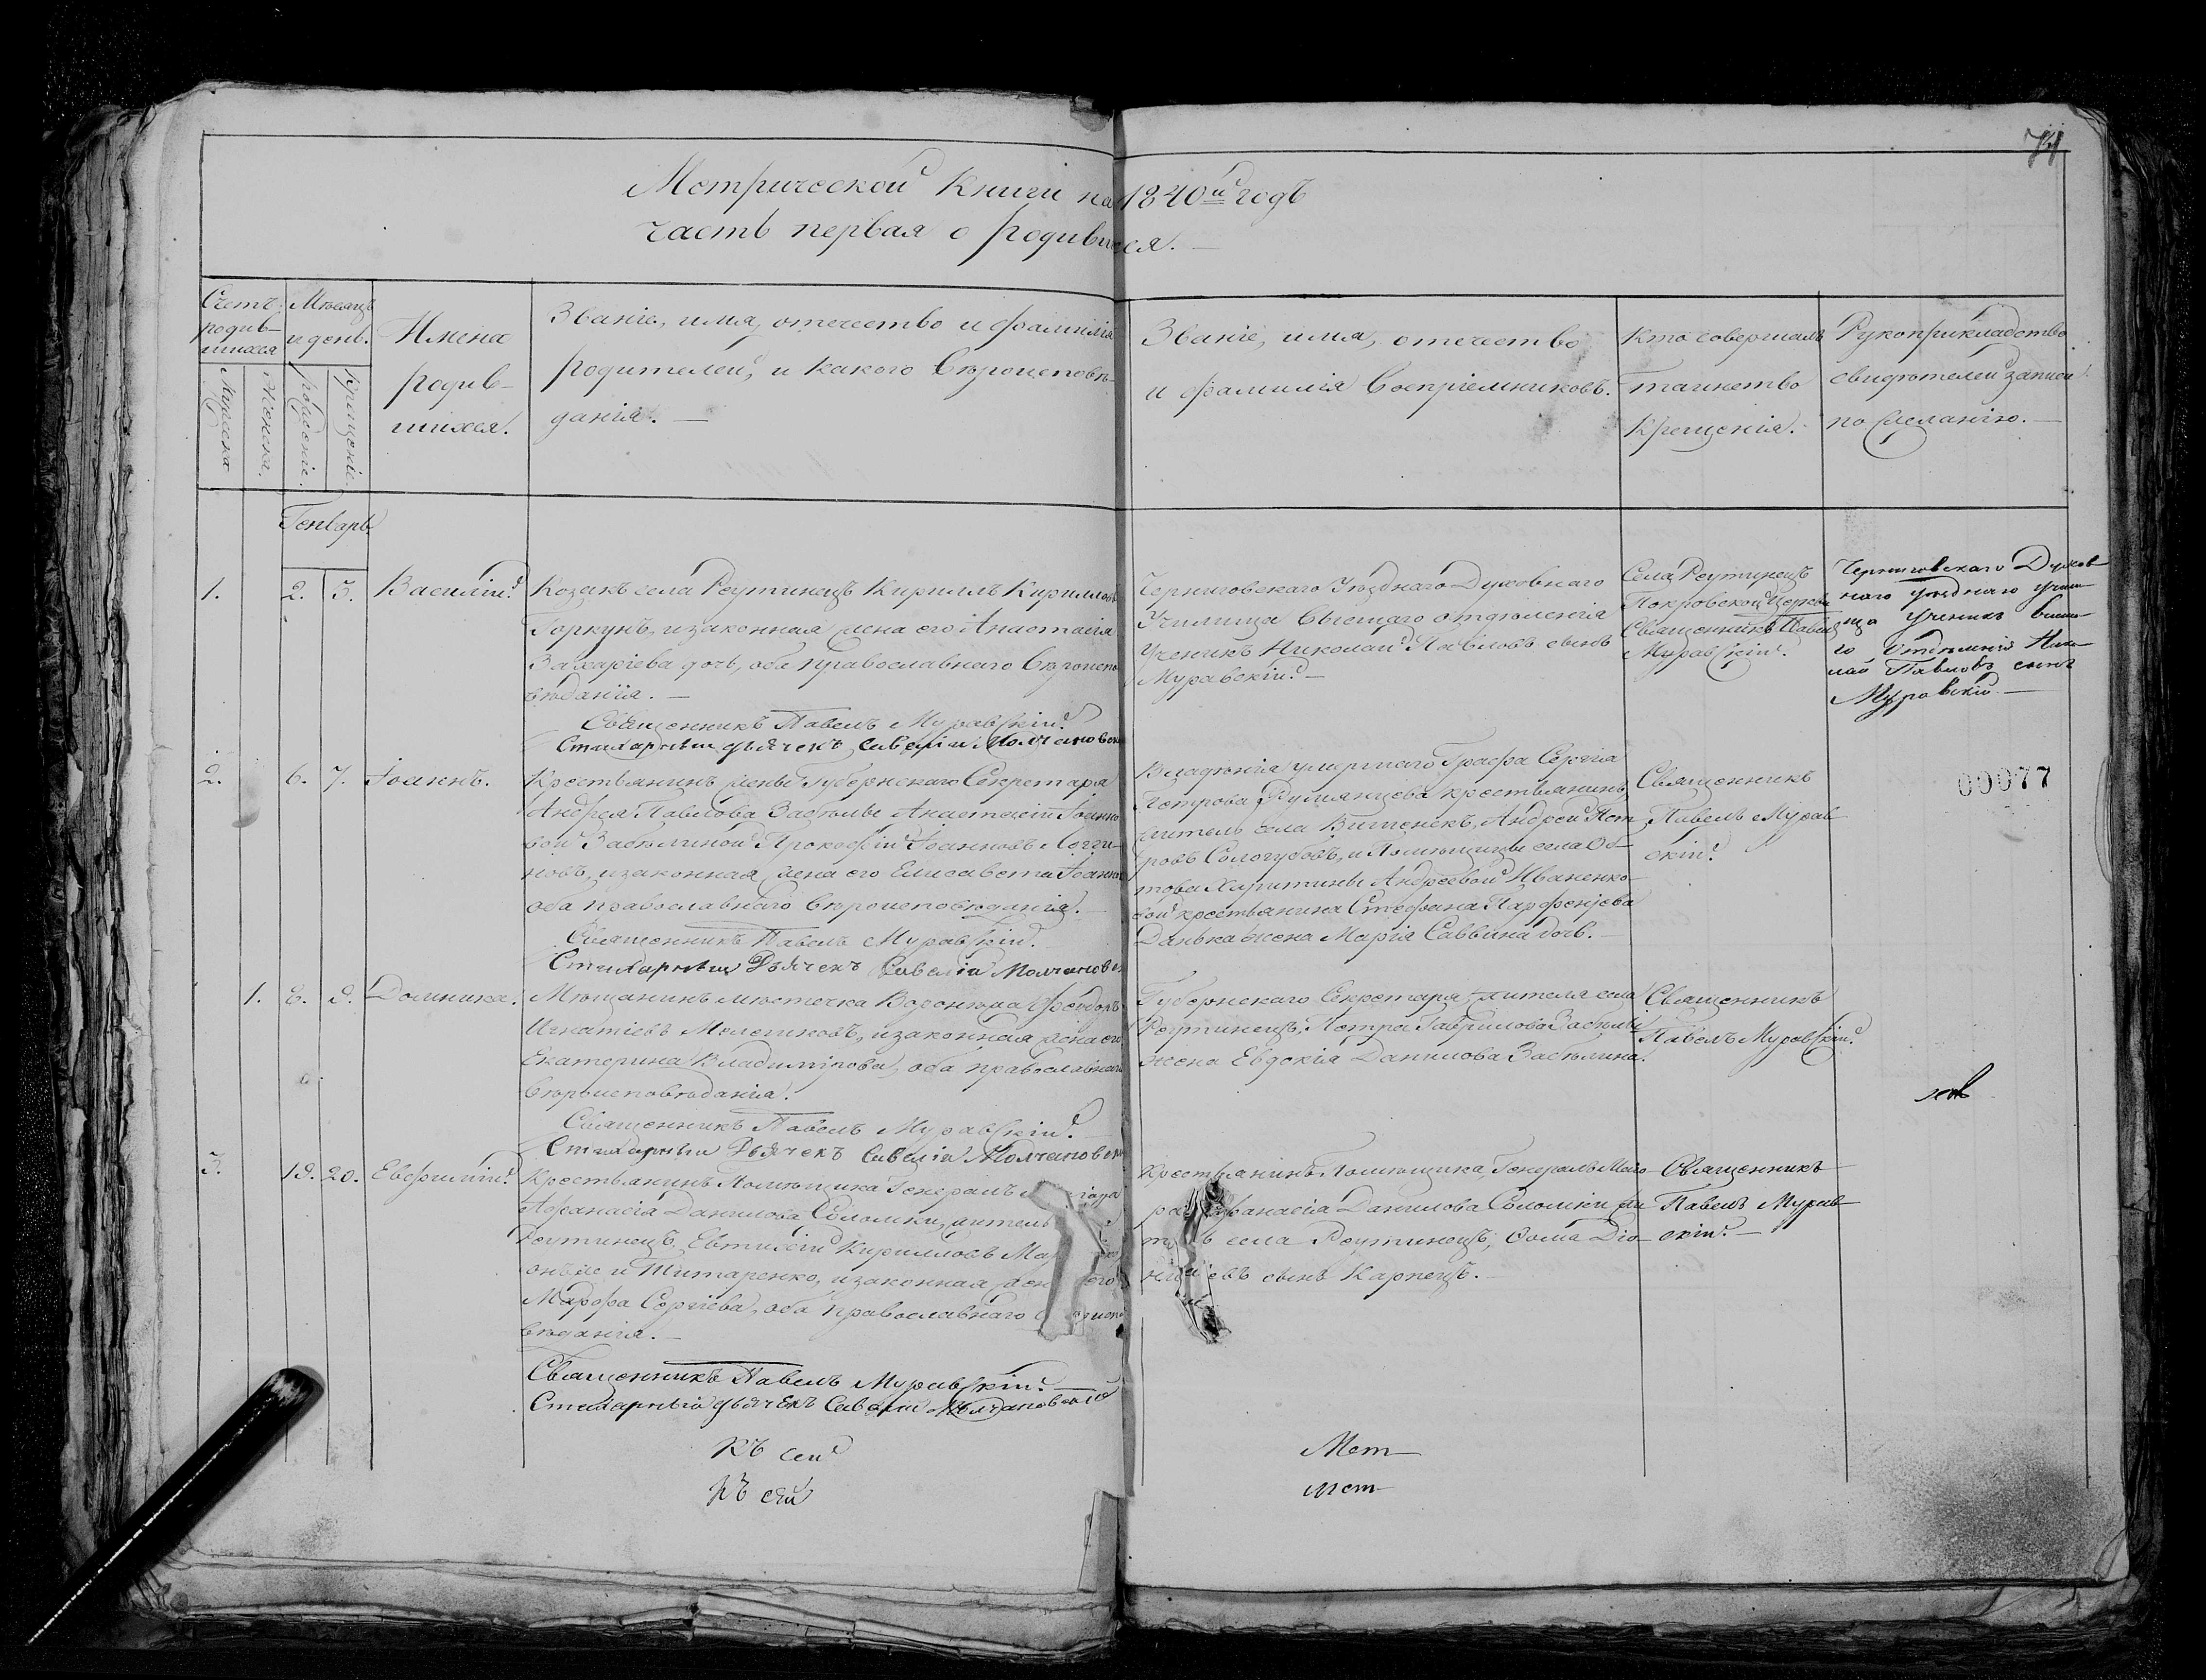 74
Метрической Книги на 1840й годъ
часть первая о родившихся.
Счетъ родив-шихся
Мѣсяцъ и день.
Имена родив-шихся.
Званіе, имя, отчество и фамилія
родителей, и какого вѣроисповѣ-
данія.
Званіе, имя, отчество
и фамилія воспріемниковъ.
Кто совершалъ
таинство
Крещенія.
Рукоприкладство
свидѣтелей записи
по желанію.
Мужеска
Женска.
рожденіе.
Крещеніе.
Генварь
1.
2.
3.
Василій.
Козакъ села Реутинецъ Кириллъ Кирилловъ
Горкунъ, и законная жена его Анастасія
Захаріева дочь, оба православнаго вѣроиспо
вѣданія.
Священникъ Павелъ Муравскій.
Стихарный дьячекъ Савелій Молчановск
Черниговскаго Уѣзднаго Духовнаго
Училища высшаго отдѣленія
Ученикъ Николай Павловъ сынъ
Муравскій.
Села Реутинецъ
Покровской Церкви
Священникъ Павелъ
Муравскій.
Черниговскаго Духов
наго уѣзднаго учили
ща ученикъ высша
го отдѣленія Нико
лай Павловъ сынъ
Муравскій
2.
6.
7.
Іоаннъ.
Крестьянинъ жены Губернскаго Секретаря
Андрея Павлова Забѣлы Анастасіи Іоанно
вой Забѣлиной Прокофій Іоанновъ Логги-
новъ, и законная жена его Елисавета Іоанно
оба православнаго вѣроисповѣданія.
Священникъ Павелъ Муравскій.
Стихарный Дьячекъ Савелій Молчановск
Владѣнія умершаго Графа Сергія
Петрова Румянцева крестьянинъ
житель села Вишенекъ, Андрей Пет
ровъ Сологубовъ, и Помѣщицы села Об
това Харитины Андреевой Иваненко
вой крестьянина Стефана Парфеніева
Данька жена Марія Саввина дочь.
Священникъ
Павелъ Мурав
скій.
00077
1.
8.
9.
Домника.
Мѣщанинъ мѣстечка Воронежа Феодоръ
Игнатіевъ Мелешковъ, и законная жена его
Екатерина Владимірова, оба православнаго
вѣроисповѣданія.
Священникъ Павелъ Муравскій.
Стихарный Дьячекъ Савелій Молчановск
Губернскаго Секретаря, жителя села
Реутинецъ, Петра Гаврилова Забѣлы
жена Евдокія Данилова Забѣлина.
Священникъ
Павелъ Муравскій.
3.
19.
20.
Евфимій.
Крестьянинъ Помѣщика Генералъ
Афанасія Данилова Соломки, житель
Реутинецъ. Евтихій Кирилловъ
онъ же и Титаренко, и законная его
Марфа Сергіева, оба православнаго
вѣданія.
Священникъ Павелъ Муравскій.
Стихарный дьячекъ Савелій Молчановскій
Крестьянинъ Помѣщика, Генералъ Маіо
ра Афанасія Данилова Соломки жи
тель села Реутинецъ, Фома Діо
нисіевъ сынъ Карпецъ.
Священникъ
Павелъ Мурав
скій.
Къ сей
Къ сей
Мет
мет